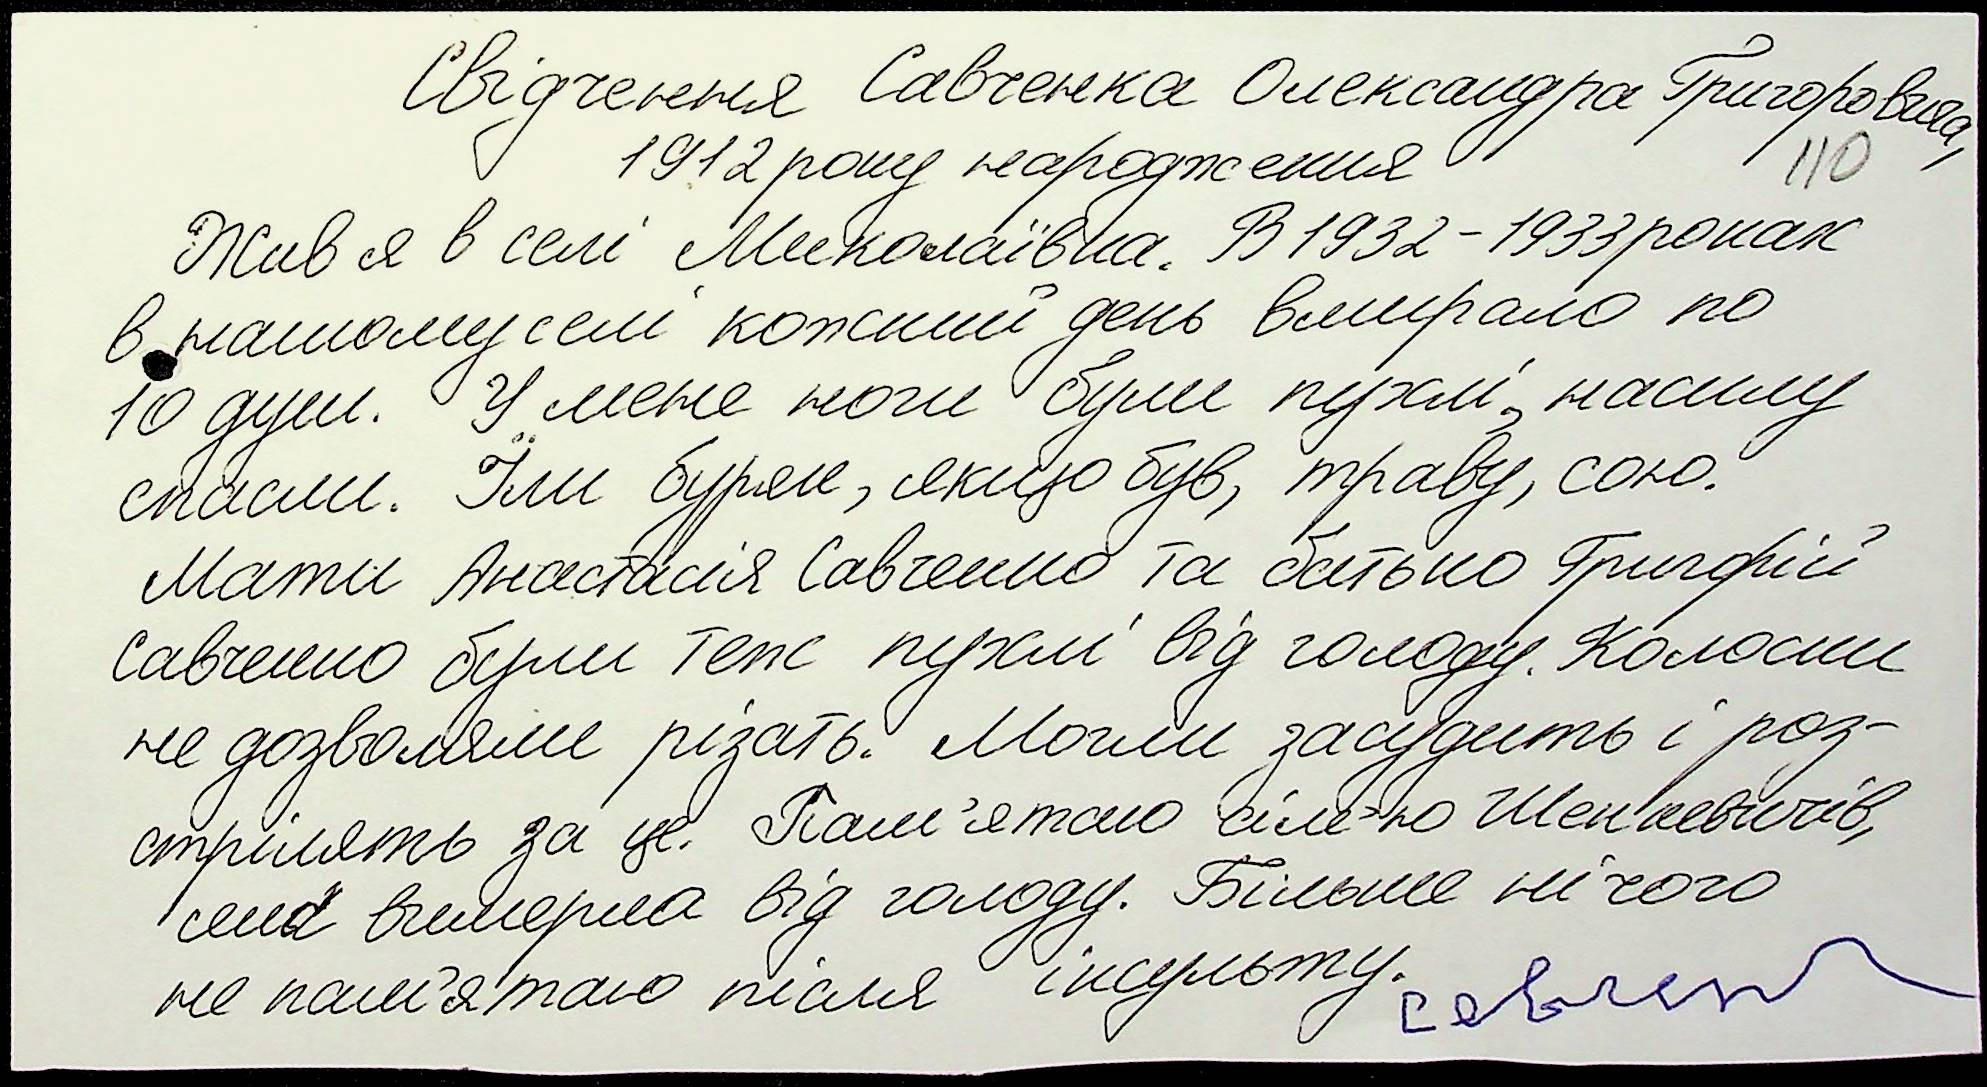 Свідчення Савченка Олександра Григоровича,
110
1912 року народження
Жив я в селі Миколаївка. В 1932-1933 роках
в нашому селі кожний день вмирало по
10 душ. У мене ноги були пухлі, насилу
спасли. Їли бурян, якщо був, траву, сою.
Мати Анастасія Савченко та батько Григорій
Савченко були теж пухлі від голоду. Колоски
не дозволяли різать. Могли засудить і роз-
стрілять за це. Пам'ятаю сім'ю Шенкевичів,
вимерла від голоду. Більше нічого
не пам'ятаю після інсульту.